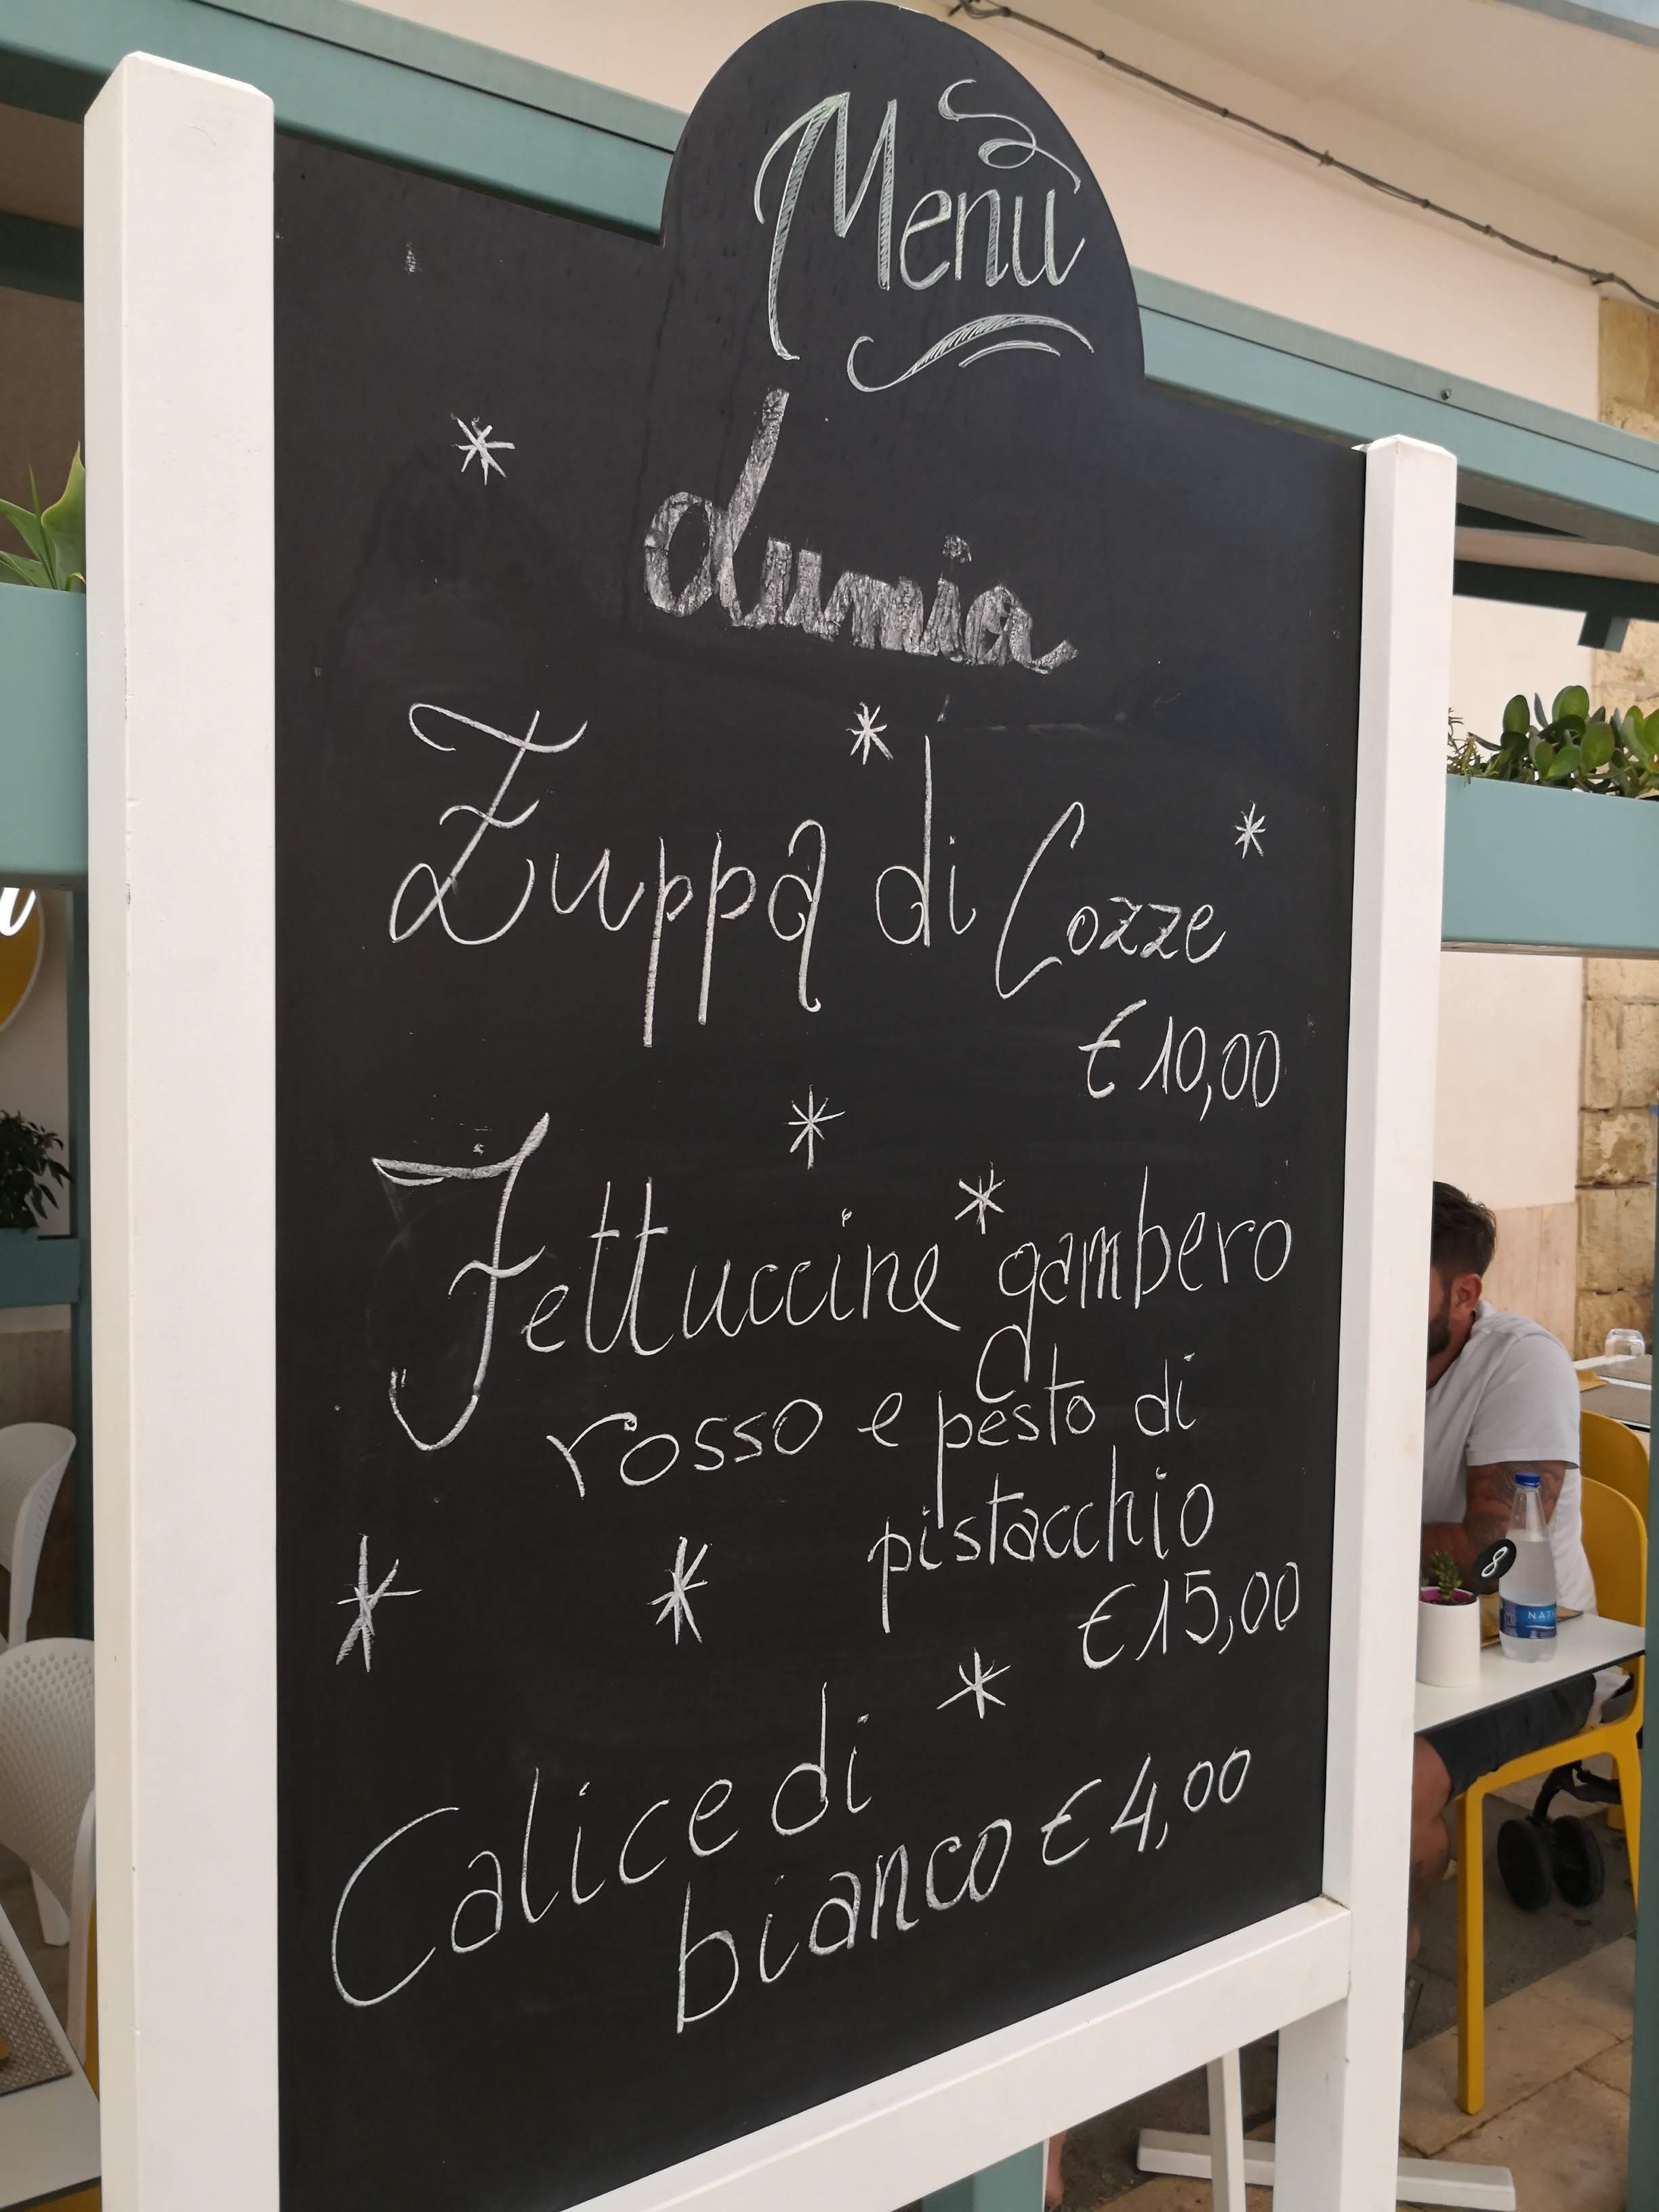 Menù
dumia
Zuppa di Cozze
€ 10,00
Fettuccine gambero
rosso e pesto di
pistacchio
€ 15,00
Calice di
bianco € 4,00
8
NATÍ